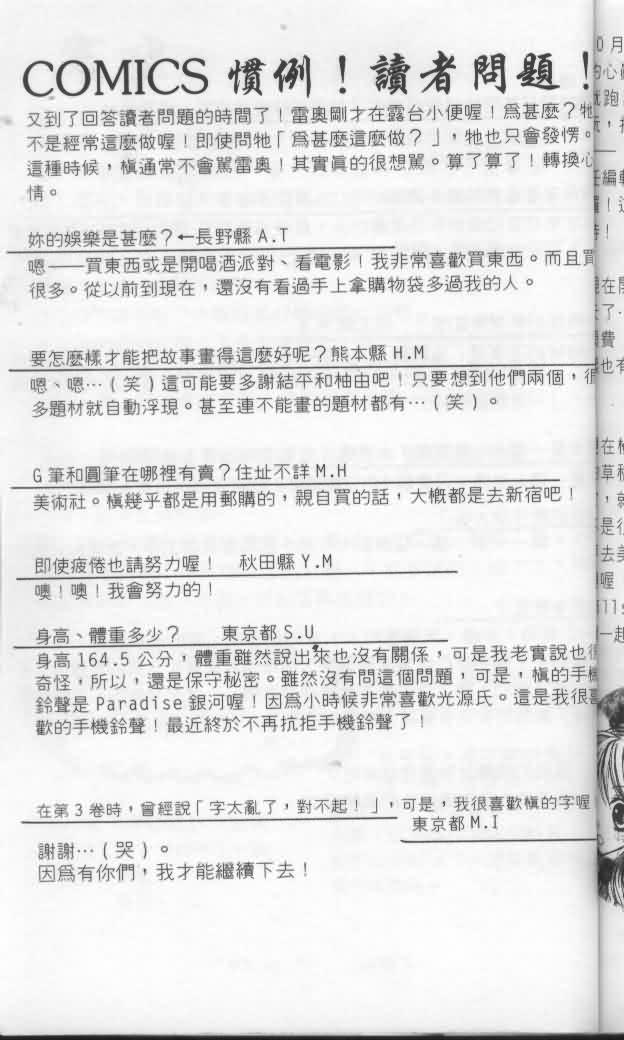 COMICS 慣例！讀者問題！
又到了回答讀者問題的時間了！雷奧剛才在露台小便喔！爲甚麼？牠
不是經常這麼做喔！即使問牠「爲甚麼這麼做？」，牠也只會發愣。
這種時候，槇通常不會罵雷奧！其實眞的很想罵。算了算了！轉換心
情。
妳的娛樂是甚麼？←長野縣 A.T
嗯——買東西或是開喝酒派對、看電影！我非常喜歡買東西。而且買
很多。從以前到現在，還沒有看過手上拿購物袋多過我的人。
要怎麼樣才能把故事畫得這麼好呢？熊本縣 H.M
嗯、嗯…（笑）這可能要多謝結不和柚由吧！只要想到他們兩個，很
多題材就自動浮現。甚至連不能畫的題材都有…（笑）。
G 筆和圓筆在哪裡有賣？住址不詳 M.H
美術社。槇幾乎都是用郵購的，親自買的話，大槪都是去新宿吧！
即使疲倦也請努力喔！ 秋田縣 Y.M
噢！噢！我會努力的！
身高、體重多少？ 東京都 S.U
身高 164.5 公分，體重雖然說出來也沒有關係，可是我老實說也很
奇怪，所以，還是保守秘密。雖然沒有問這個問題，可是，槇的手機
鈴聲是 Paradise 銀河喔！因爲小時候非常喜歡光源氏。這是我很喜
歡的手機鈴聲！最近終於不再抗拒手機鈴聲了！
在第 3 卷時，曾經說「字太亂了，對不起！」，可是，我很喜歡槇的字喔
東京都 M.I
謝謝…（哭）。
因爲有你們，我才能繼續下去！